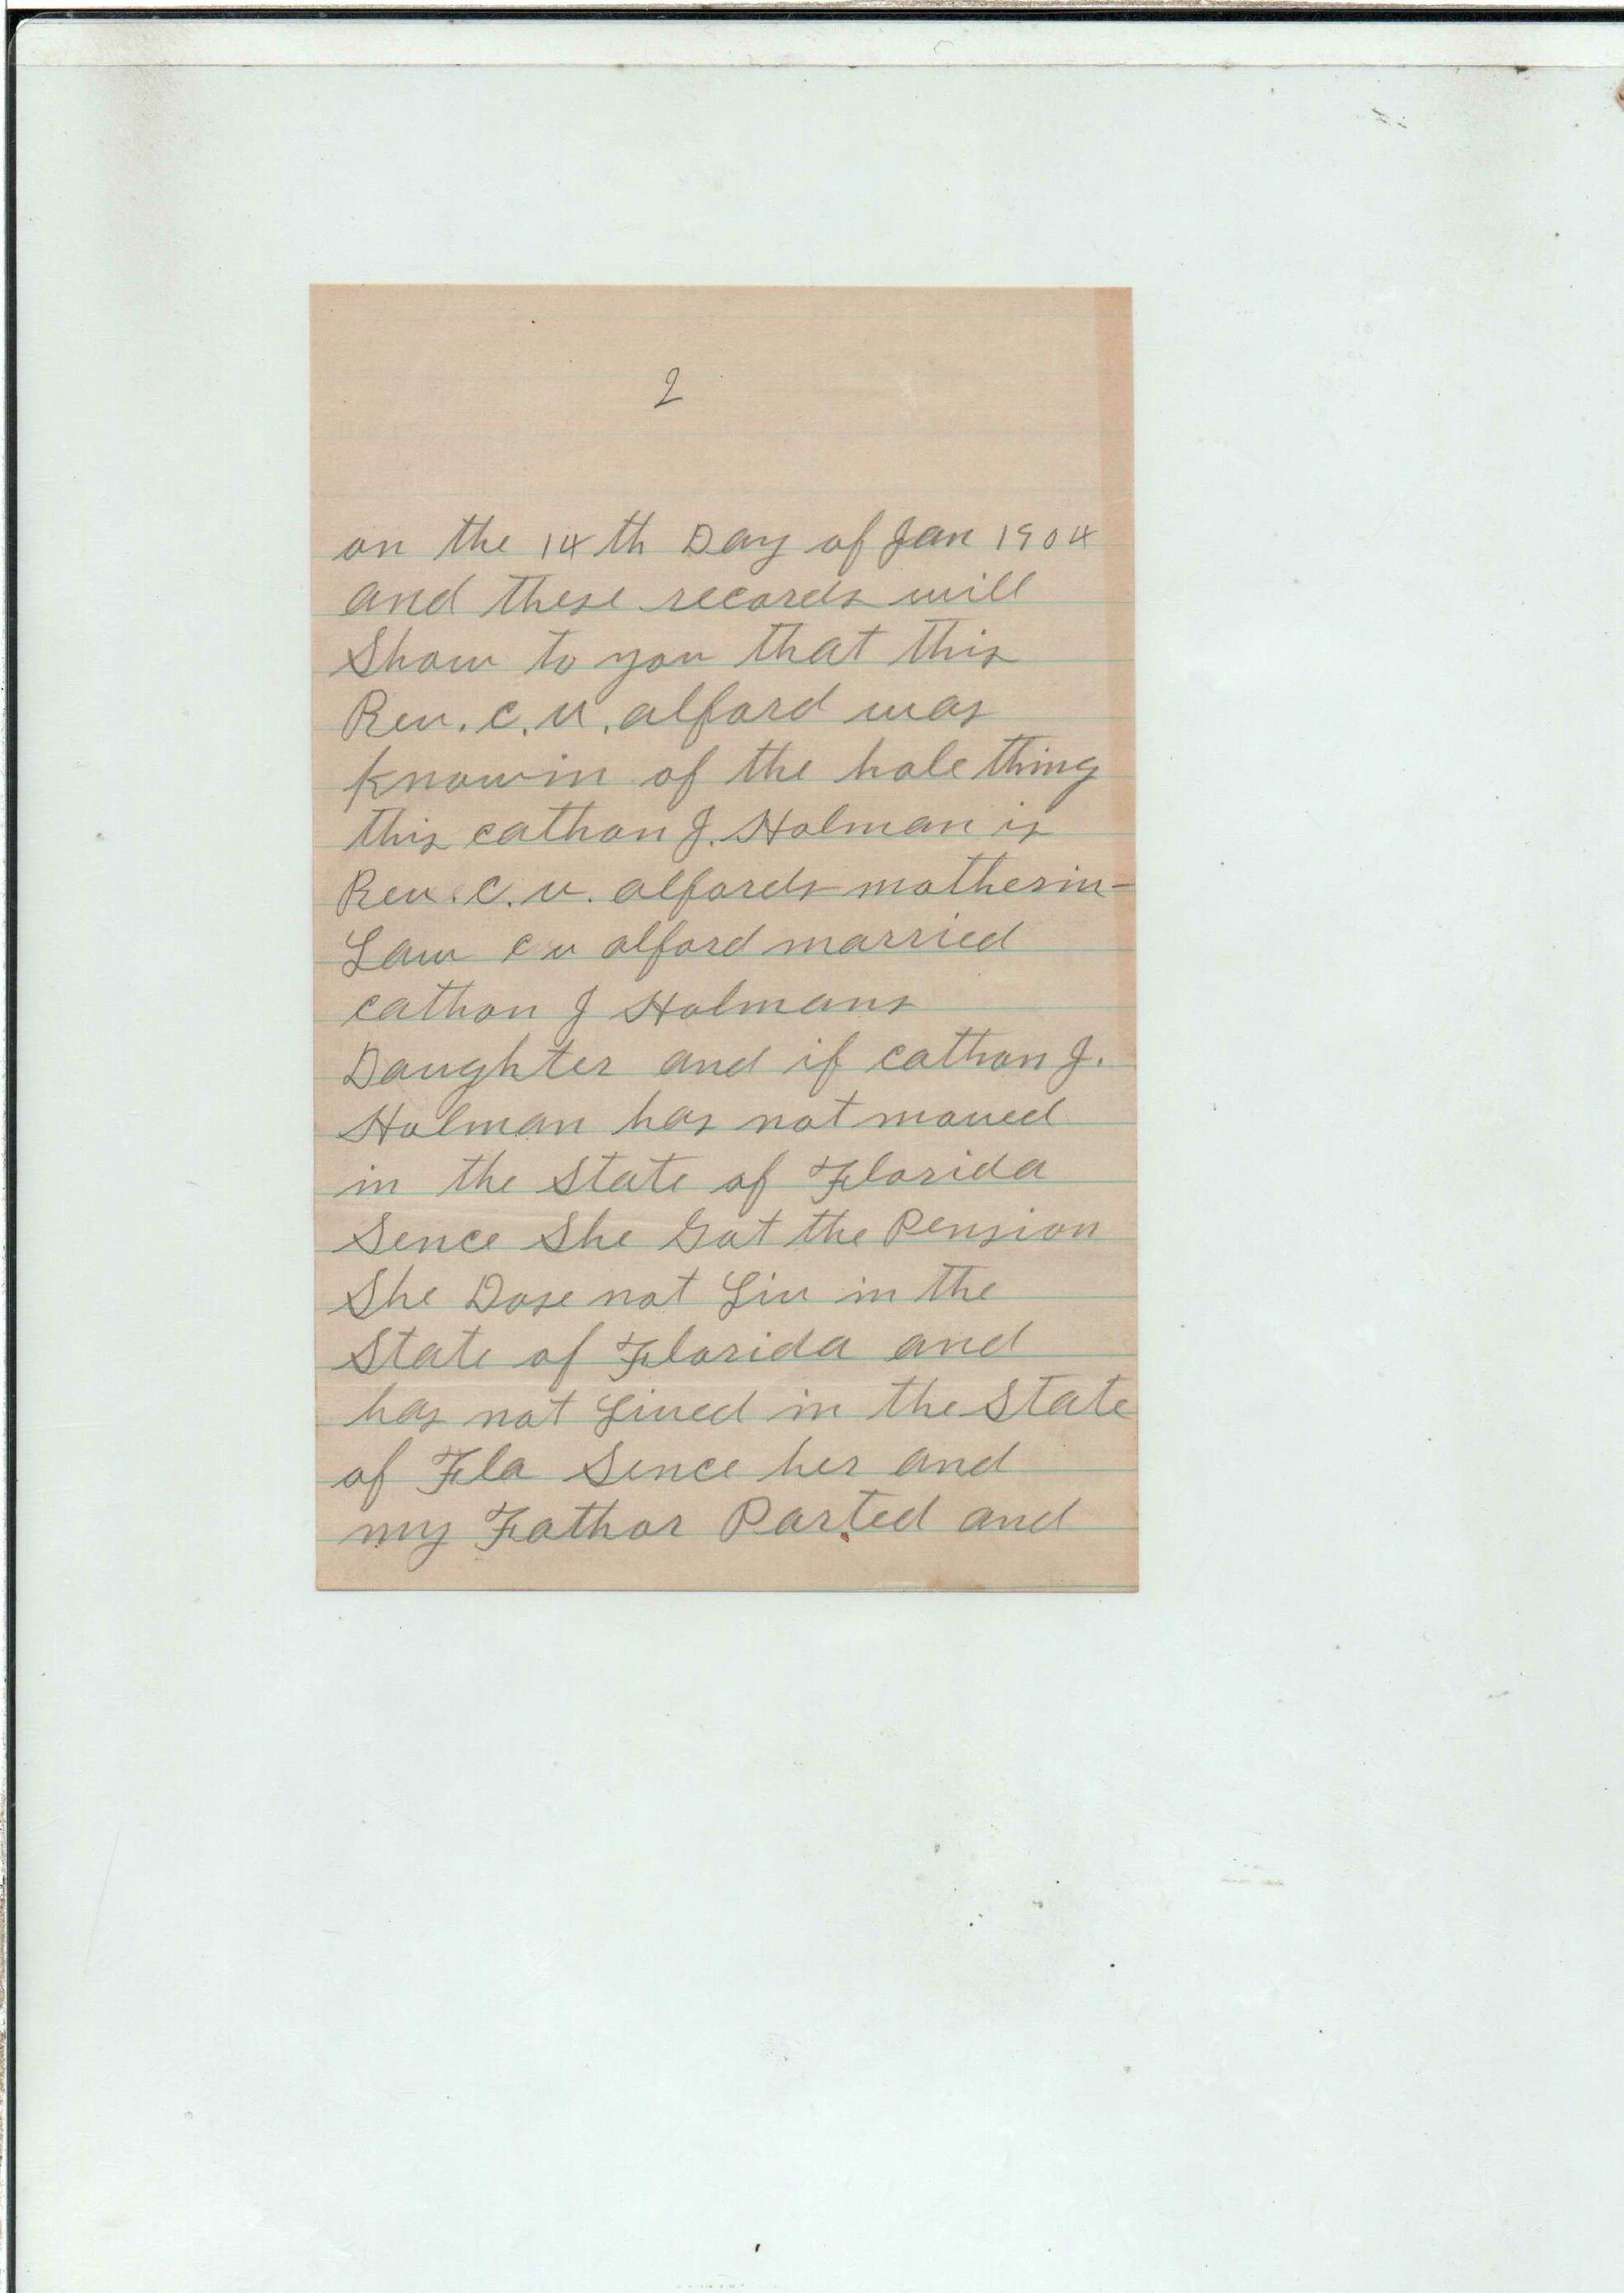 2
on the 14th Day of Jan 1904
and these records will
Show to you that this
Rev. C. V. alford was
knowin of the hole thing
this cathon J. Holman is
Rev. C. V. alfords motherin-
Law C V alford married
cathon J Holmans
Daughter and if cathon J.
Holman has not moved
in the State of Florida
Sence She Got the Pension
She Dose not Liv in the
State of Florida and
has not Lived in the State
of Fla Sence her and
my Fathor Parted and